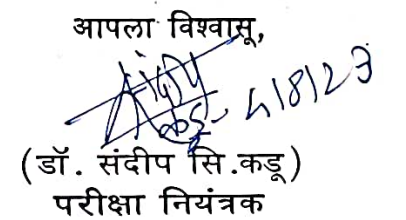 आपला विश्वासू,
संदीप कडू- 4/8/23
(डॉ. संदीप सि.कडू)
परीक्षा नियंत्रक